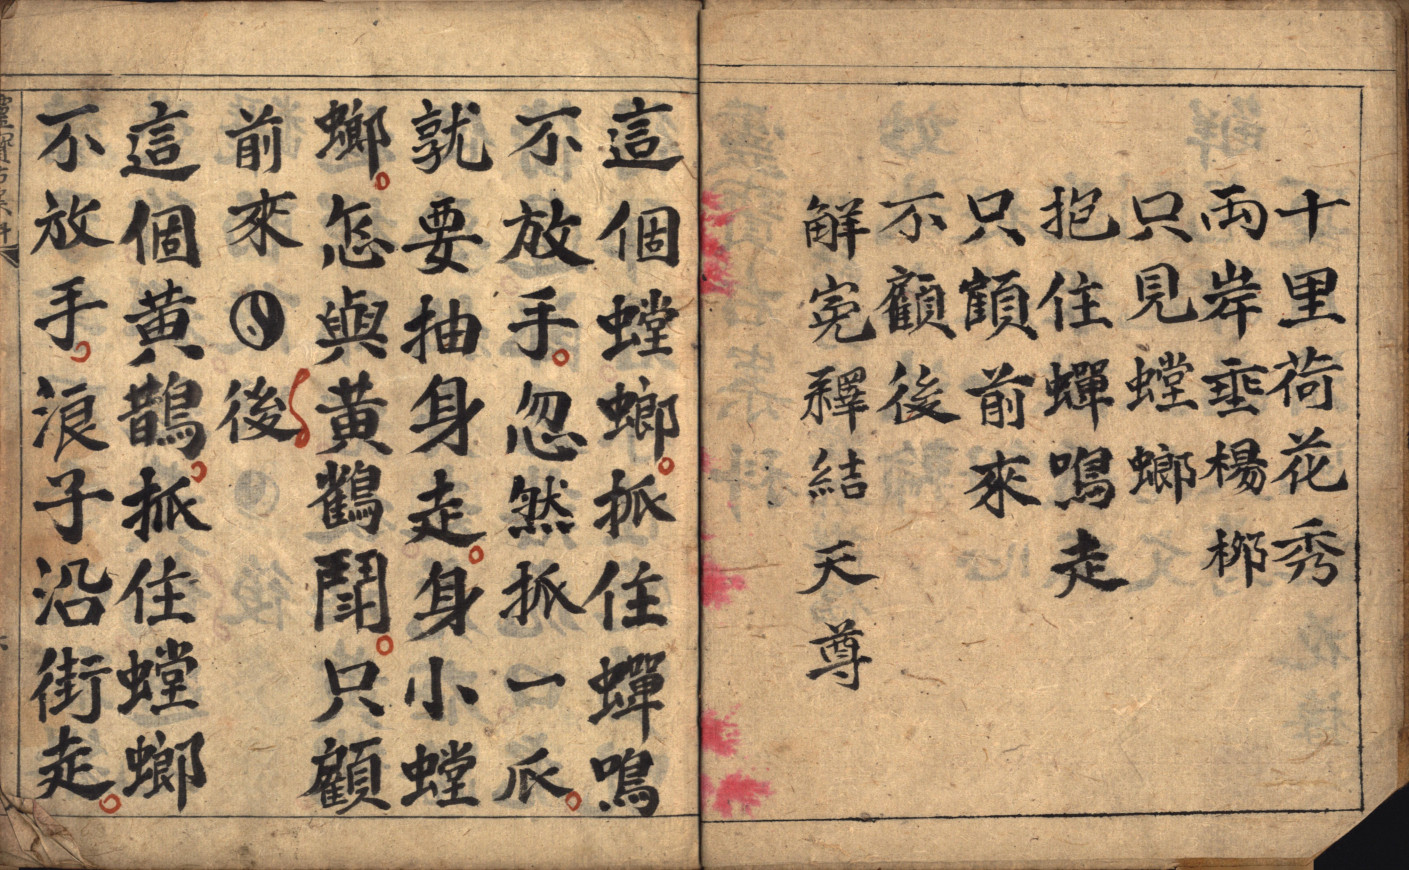 十里荷花秀
両岸垂楊柳
只見螳螂
抱住蟬鳴走
只顧前來
不顧後
解寃釋結天尊
這個螳螂抓住蟬鳴
不放手忽然抓一爪
就要抽身走身小螳
螂怎與黄鶴鬪只顧
前來後
這個黄鵲抓住螳螂
不放手浪子沿街走